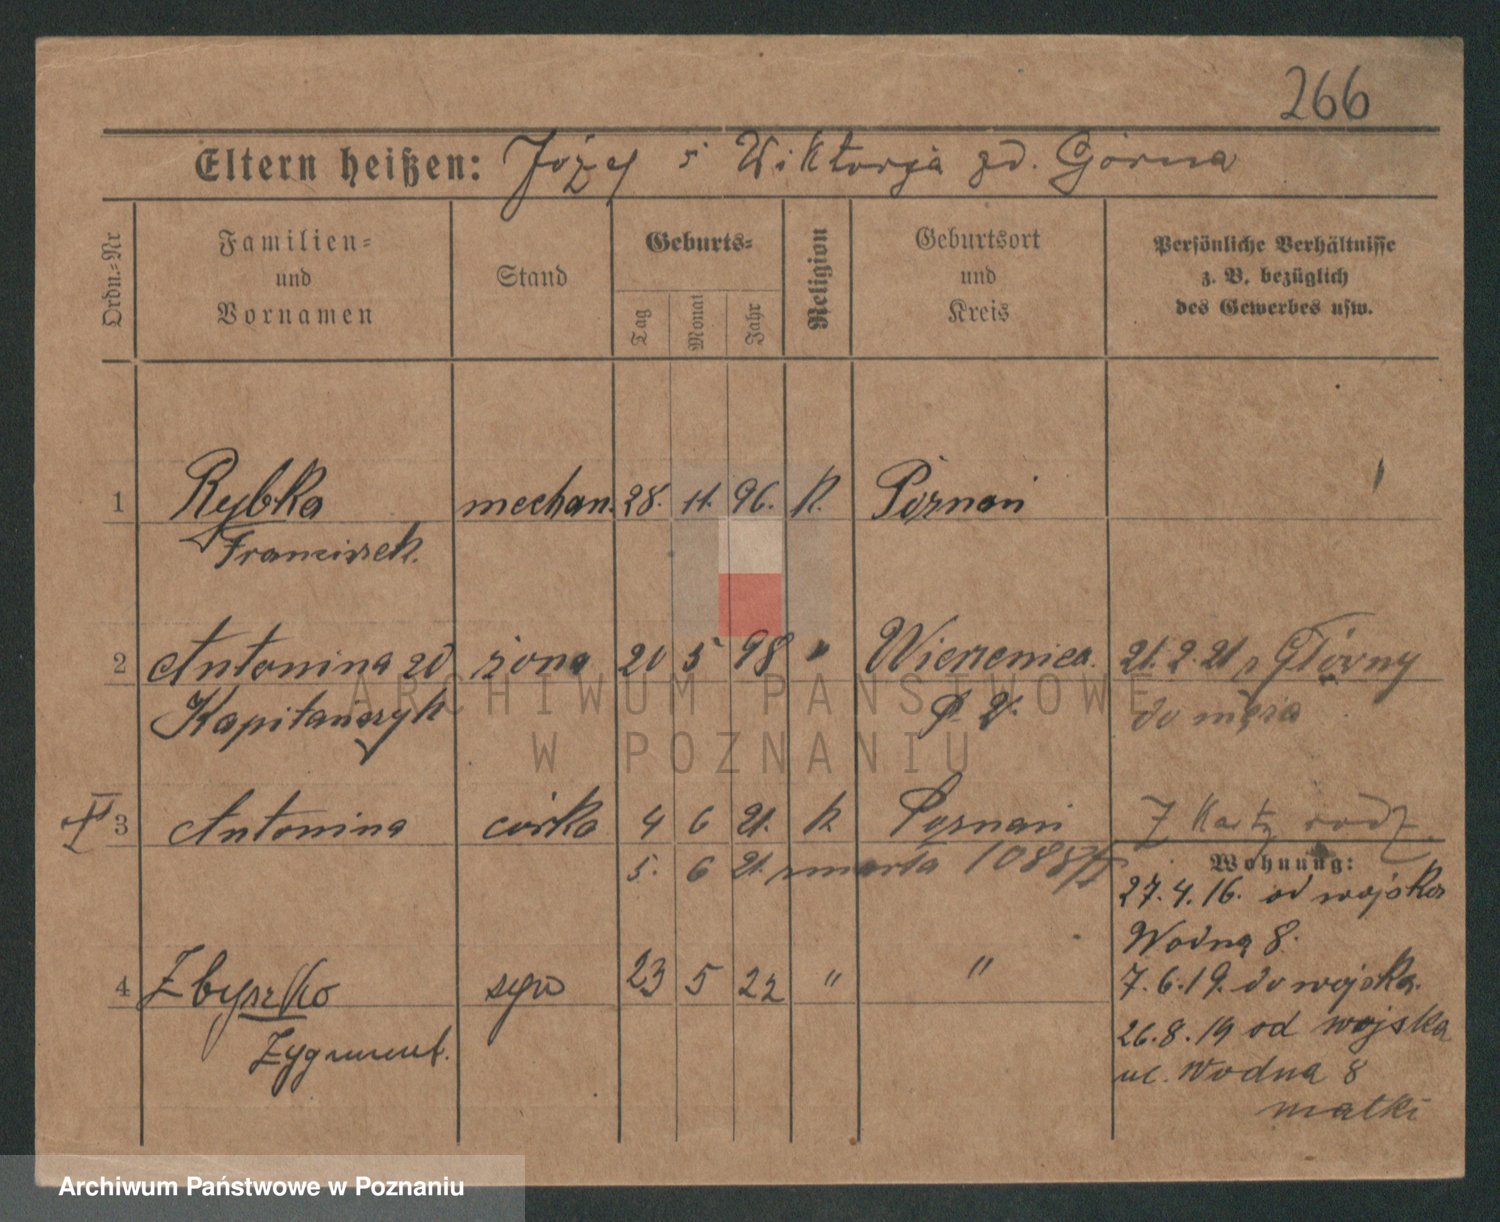 266
Eltern heißen: Józef i Wiktorja zd. Górna
Ordn.-Nr
Familien-
und
Vornamen
Stand
Geburts-
Tag
Monat
Jahr
Religion
Geburtsort
und
Kreis
Persönliche Verhältnisse
z. B. bezüglich
des Gewerbes usw.
1 Rybka mechan. 28. 11. 96. K. Poznań
Franciszek.
2 Antonina zd żona 20 5 98 " Wierzenica. 21. 2. 21 z Główny
Kapitańczyk P. W. do męża
ARCHIWUM PAŃSTWOWE
W POZNANIU
3 Antonina córka 4 6 21. K Poznań Z Karty rodz.
5. 6 21 zmarła 1088/
Wohnung:
27. 4. 16. od wojska
Wodna 8.
4 Zbyszko syn 23 5 22 " " 7. 6. 19. do wojska.
26. 8. 19 od wojska
Zygmunt. ul. Wodna 8
matki
Archiwum Państwowe w Poznaniu